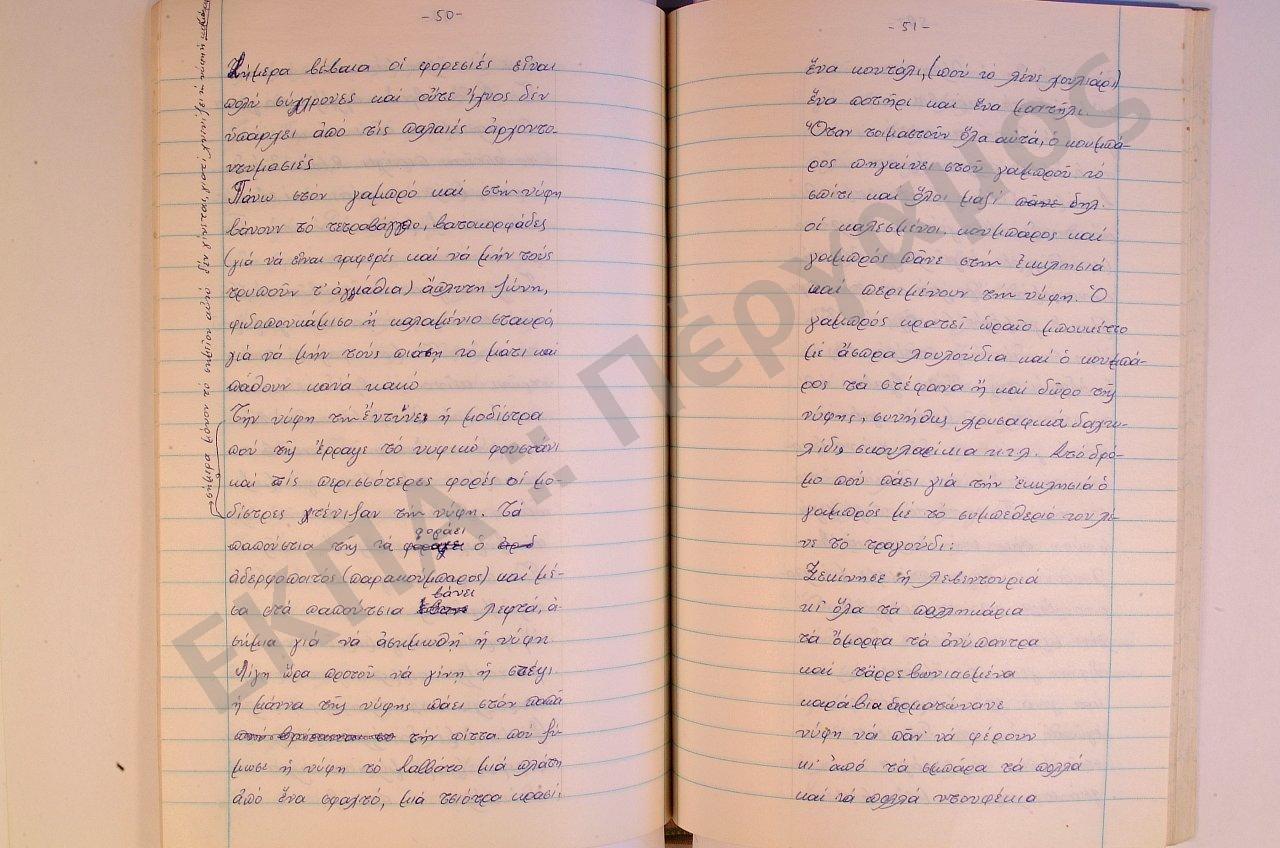 -50-
Σήμερα βέβαια οἱ φορεσιές εἶναι
πολύ σύγχρονες καί οὔτε ἴχνος δέν
ὑπάρχει ἀπό τίς παλαιές ἀρχοντο-
ντυμασιές
Πάνω στόν γαμπρό καί στήν νύφη
βάνουν τό τετροβάγγελο, βατοκορφάδες
(γιά νά εἶναι τρυφερές καί νά μήν τούς
τρυποῦν τ' ἀγκάθια) ἄπλυτη ζώνη,
φιδοπουκάμισο ἤ καλαμένιο σταυρό
γιά νά μήν τούς πιάση τό μάτι καί
πάθουν κανά κακό
Τήν νύφη τήν ἔντυνε ἡ μοδίστρα
πού τῆς ἔρραψε τό νυφικό φουστάνι
καί τίς περισσότερες φορές οἱ μο-
δίστρες χτένιζαν τήν νύφη. Τά
παπούτσια της τά φοράει ὁ
ἀδερφοποιτός (παρακούμπαρος) καί μέ-
σα στά παπούτσια βάνει λεφτά, ἀ-
σήμια γιά νά ἀσημωθῆ ἡ νύφη
Λίγη ὥρα προτοῦ νά γίνη ἡ στέψι
ἡ μάννα τῆς νύφης πάει στόν παπά
τήν πίττα πού ζύ-
μωσε ἡ νύφη τό Σαββάτο μιά πλάτη
ἀπό ἕνα σφαχτό, μιά τσιότρα κρασί,
σήμερα μόνον τό σημεῖον αὐτό δέν γίνεται, γιατί χτενίζει ἡ
-51-
ἕνα κουτάλι, (πού τό λένε χουλιάρι)
ἕνα ποτήρι καί ἕνα μαντήλι.
Ὅταν τοιμαστοῦν ὅλα αὐτά, ὁ κουμπά-
ρος πηγαίνει στοῦ γαμπροῦ τό
σπίτι καί ὅλοι μαζί πᾶνε δηλ.
οἱ καλεσμένοι, κουμπάρος καί
γαμπρός πᾶνε στήν ἐκκλησιά
καί περιμένουν τήν νύφη. Ὁ
γαμπρός κρατεῖ ὡραῖο μπουκέττο
μέ ἄσπρα λουλούδια καί ὁ κουμπά-
ρος τά στέφανα ἤ καί δῶρο τῆς
νύφης, συνήθως χρυσαφικά δαχτυ-
λίδι, σκουλαρίκια κ.τ.λ. Στό δρό-
μο πού πάει γιά τήν ἐκκλησιά ὁ
γαμπρός μέ τό συμπεθεριό του λέ-
νε τό τραγούδι:
Ξεκίνησε ἡ λεβεντουριά
κι' ὅλα τά παλληκάρια
τά ὄμορφα τά ἀνύπαντρα
καί τἀρρεβωνιασμένα
καράβια ἀρματώνανε
νύφη νά πᾶν νά φέρουν
κι' ἀπό τά σμπάρα τά πολλά
καί τά πολλά ντουφέκια
ΕΚΠΑ :: Πέργαμος